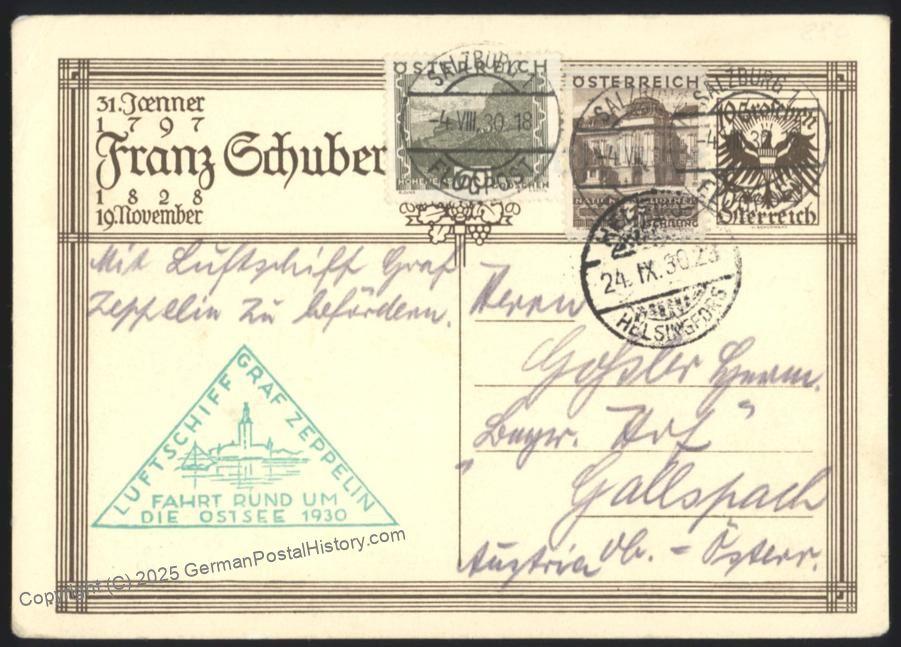 31. Jænner
1797
Franz Schuber
1828
19. November
ÖSTERREICH
ÖSTERREICH
10 Groschen
Österreich
SALZBURG 1
-4.VIII.30.18
FLUGPOST
SALZBURG 1
FLUGPOST
24.IX.30.23
HELSINGFORS
Mit Luftschiff Graf
Zeppelin zu befördern.
Herrn
Herm.
Bayr. Hof"
Gallspach
Austria Ob. - Österr.
LUFTSCHIFF GRAF ZEPPELIN
FAHRT RUND UM
DIE OSTSEE 1930
Copyright (C) 2025 GermanPostalHistory.com